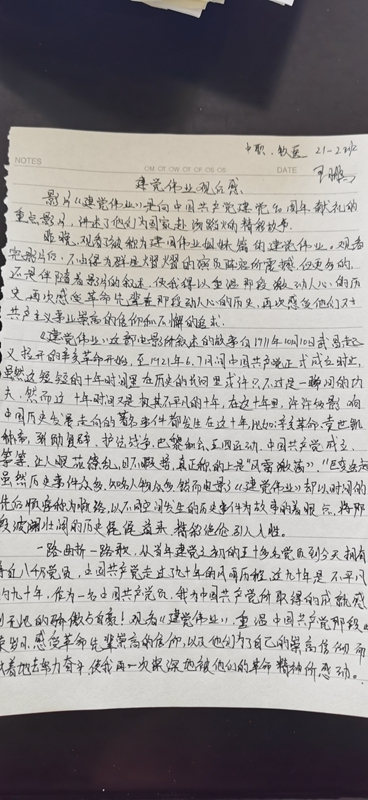 中职.牧医 21-2班
NOTES
DATE 王鹏
建党伟业观后感
影片《建党伟业》是向中国共产党建党90周年献礼的
重点影片,讲述了他们为国家赴汤蹈火的精彩故事.
观看了被称为建国伟业姐妹篇的建党伟业。观看
完影片后,不由得为群星熠熠的演员阵容所震撼,但更多的,
还是伴随着影片的叙述,使我得以重温那段激动人心的历
史,再次感受革命先辈那段动人心的历史,再次感受他们对
共产主义事业崇高的信仰和不懈的追求.
《建党伟业》这部电影所叙述的故事自1911年10月10日武昌起
义拉开的辛亥革命开始,至1921年6.7月间中国共产党正式成立时止,
虽然这短短的十年时间里在历史的长河里或许只不过是一瞬间的功
夫,然而这十年时间又是极其不平凡的十年,在这十年里,许许多多影响
中国历史发展走向的著名事件都发生在这十年,比如:辛亥革命,袁世凯
称帝,张勋复辟,护法战争,巴黎和会,五四运动,中国共产党成立,
等等,让人眼花缭乱,目不暇接,真正称的上是"风云激荡",
虽然历史事件众多,知名人物众多,然而电影《建党伟业》却以时间的
先后顺序称为叙路,以不同空间发生的历史事件为故事的着眼点,将那
段波澜壮阔的历史娓娓道来,精彩绝伦引人入胜。
一路曲折一路歌,从当年建党之初的五十多名党员到今天拥有
将近八千万党员,中国共产党走过了九十年的风雨历程,这九十年是不平凡
的九十年,作为一名中国共产党员,我为中国共产党所取得的成就感
到无比的骄傲与自豪!观看《建党伟业》,重温中国共产党那段
感受革命先辈崇高的信仰,以及他们为了自己的崇高信仰而
执着地去努力奋斗,使我再一次深深地被他们的革命精神所感动。